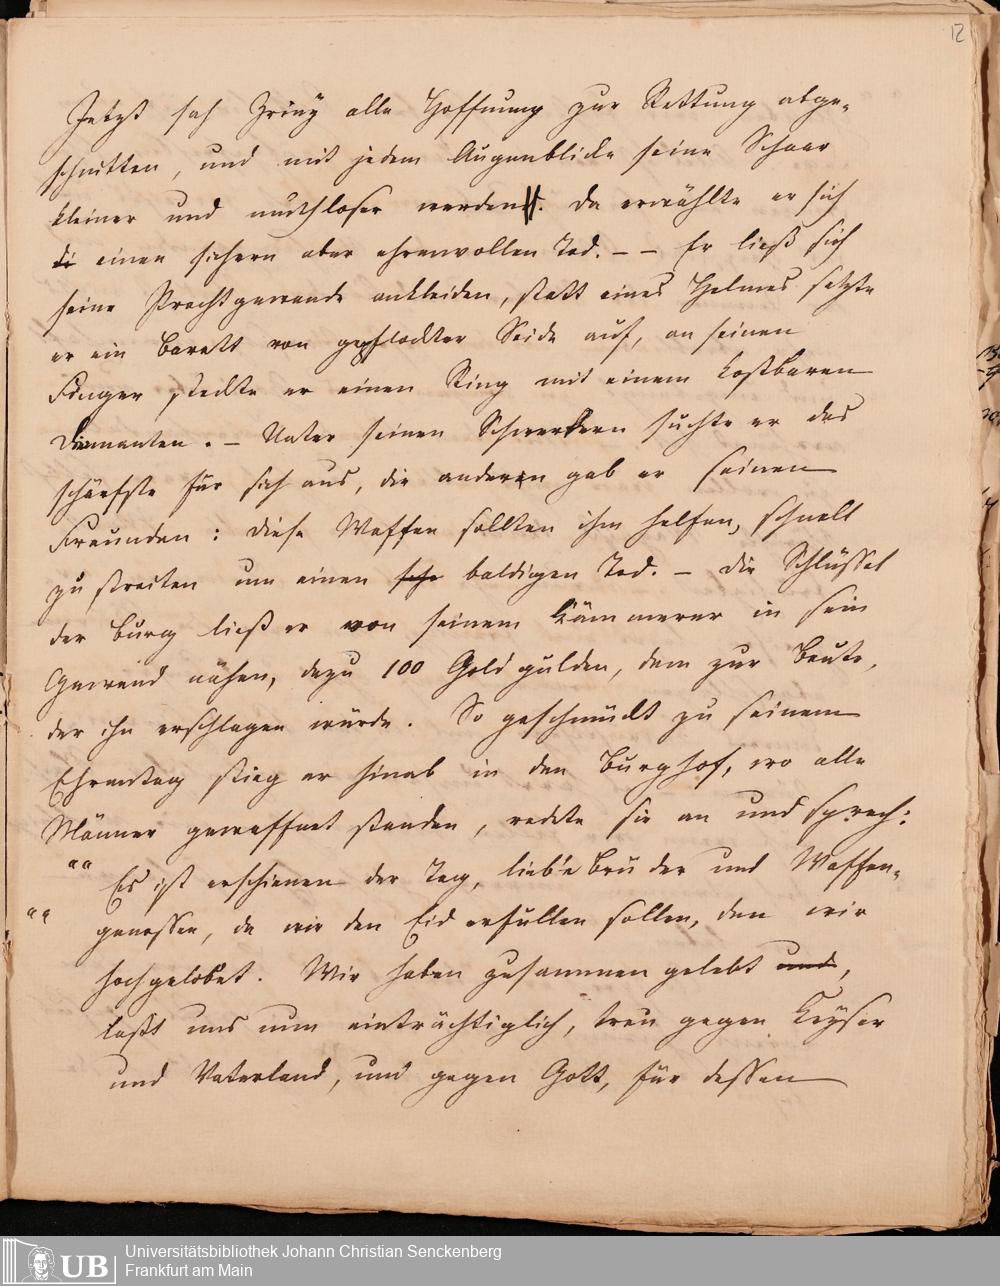 12
Jetzt sah Zriny alle Hoffnung zur Rettung abge-
schnitten, und mit jedem Augenblicke seine Schaar
kleiner und muthloser werden. Da erwählte er sich
einen sichern aber ehrenvollen Tod. – – Er ließ sich
seine Prachtgewande ankleiden, statt eines Helmes setzte
er ein Barett von Seide auf, an seinen
Finger steckte er einen Ring mit einem kostbaren
Diamanten. – Unter seinen Schwertern suchte er das
schärfste für sich aus, die anderen gab er seinen
Freunden: diese Waffen sollten ihm helfen, schnell
zu streiten um einen baldigen Tod. – Die Schlüssel
der Burg ließ er von seinem Kämmerer in sein
Gewand nähen, dazu 100 Goldgulden, dem zur Beute,
der ihn erschlagen würde. So geschmückt zu seinem
Ehrentag stieg er hinab in den Burghof, wo alle
Männer gewaffnet standen, redete sie an und sprach:
"" Es ist erschienen der Tag, liebe Brüder und Waffen-
"" genossen, da wir den Eid erfüllen sollen, den wir
hochgelobet. Wir haben zusammen gelebt und,
laßt uns nun einträchtiglich, treu gegen Keyser
und Vaterland, und gegen Gott, für dessen
UB Universitätsbibliothek Johann Christian Senckenberg
Frankfurt am Main